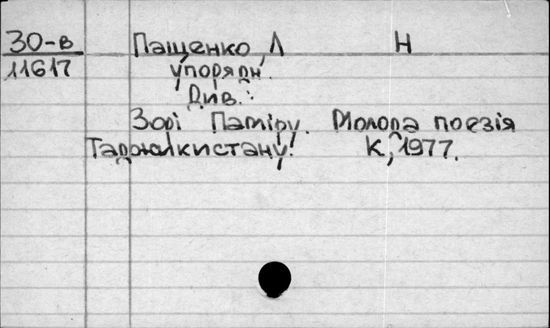 30-в Пащенко, Л Н
11617 упорядн.
Див.:
Зорі Паміру. Молода поезія
Таджикистану. К, 1977.